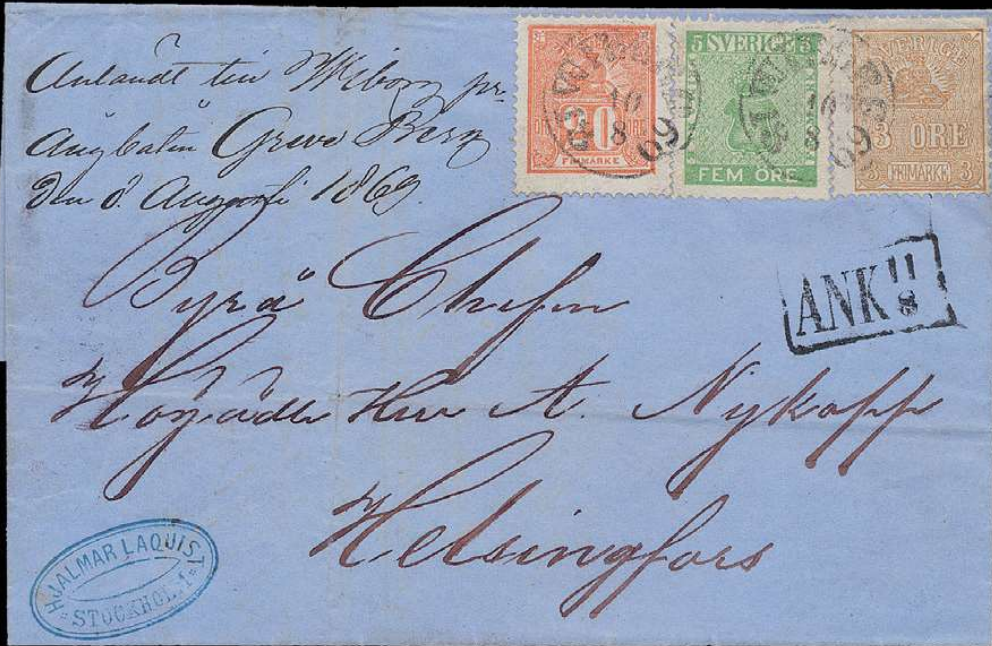 Anlandt till Wiborg pr.
Ångbåten Greve Berg
den 8. Augusti 1869.
20
FRIMÄRKE
10
8
69
5 SVERIGE 5
FEM ÖRE
10
8
69
SVERIGE
3 ÖRE
3 FRIMÄRKE 3
ANK 11
8
Byrå Chefen
Herr A. Nykopp
Helsingfors
HJALMAR LAQUIST
STOCKHOLM